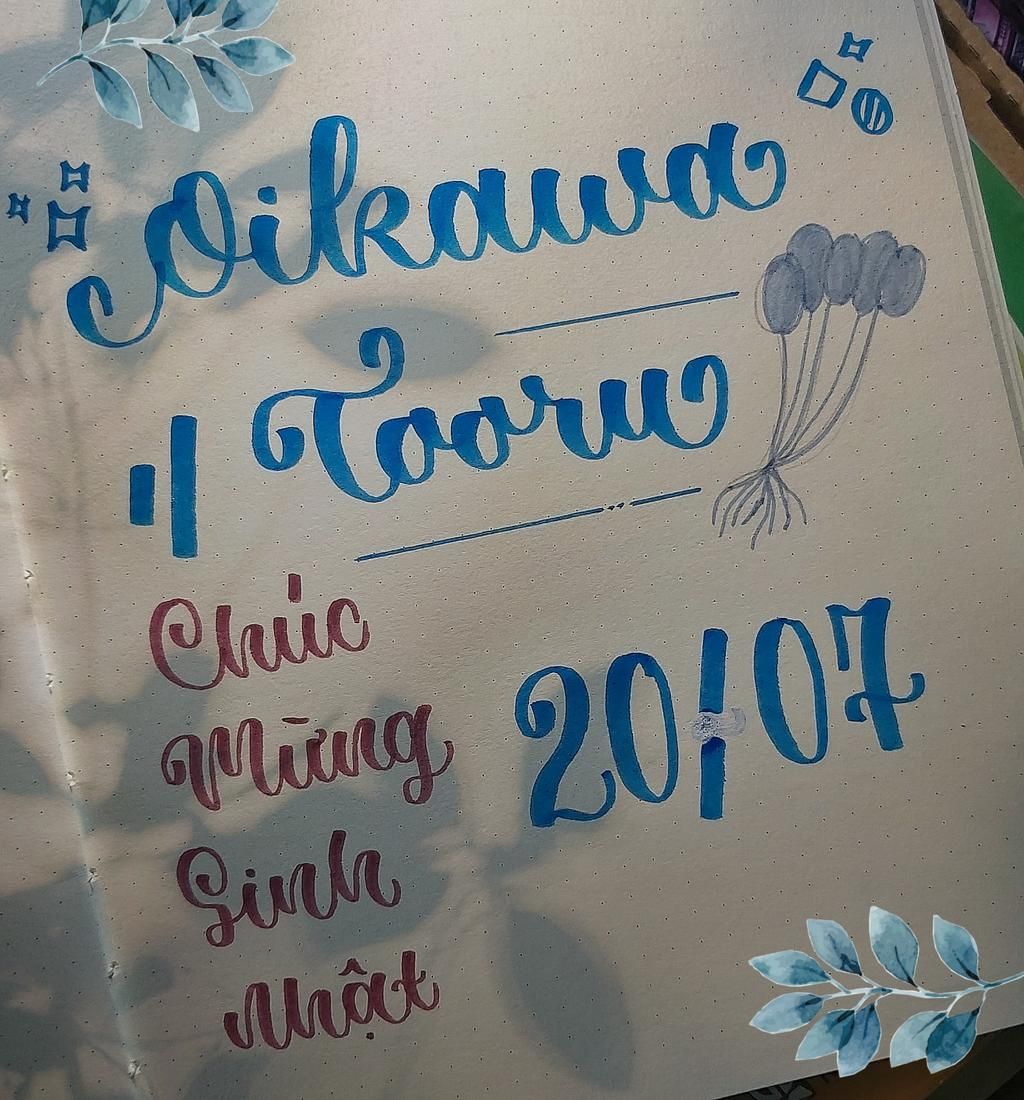 Oikawa
Tooru
Chúc
Mừng
Sinh
Nhật
20/07